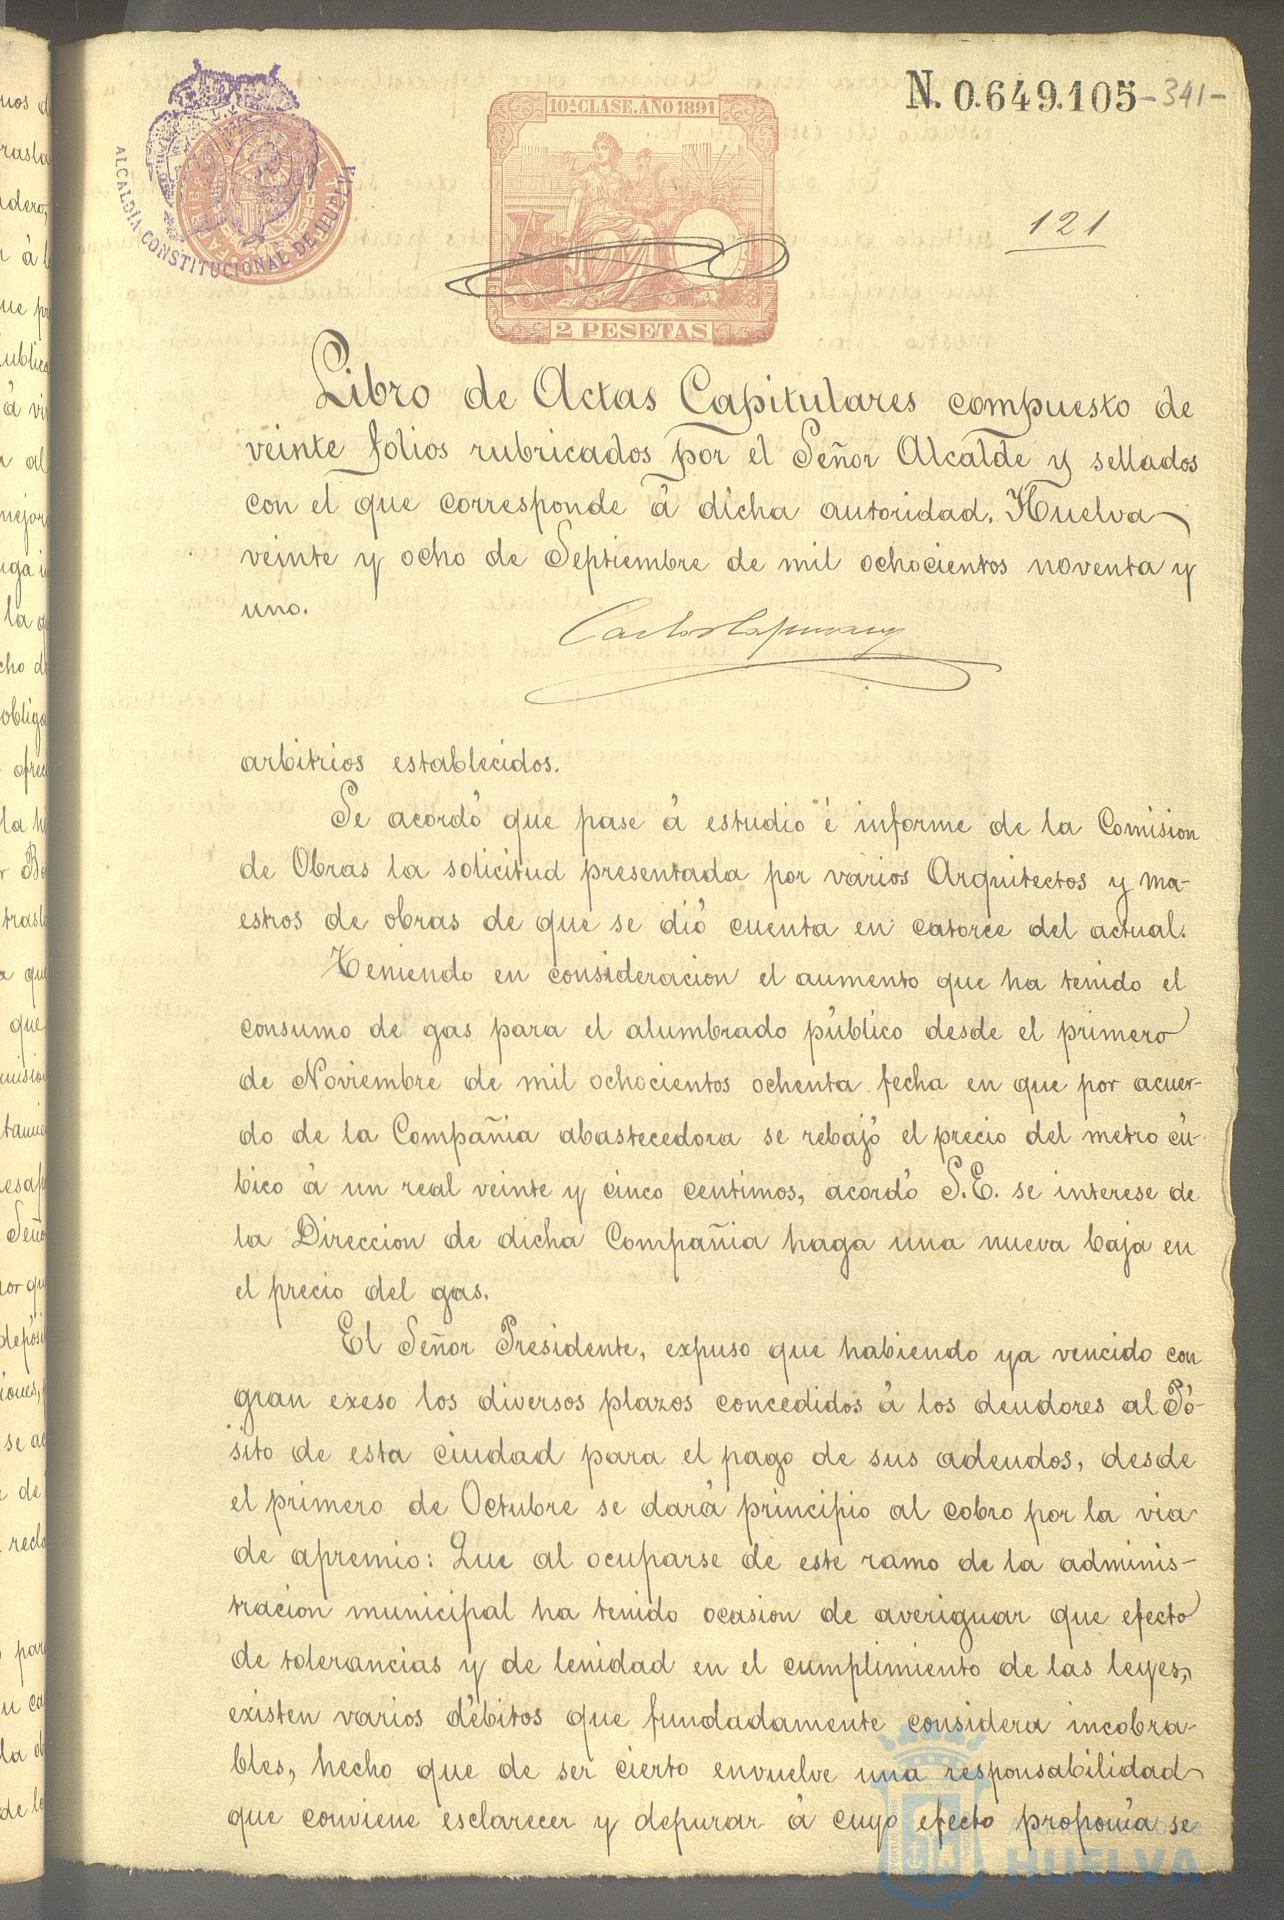 N. 0.649.105 -341-
10ª CLASE. AÑO 1891
ALCALDÍA CONSTITUCIONAL DE HUELVA
121
2 PESETAS
Libro de Actas Capitulares compuesto de
veinte folios rubricados por el Señor Alcalde y sellados
con el que corresponde á dicha autoridad. Huelva
veinte y ocho de Septiembre de mil ochocientos noventa y
uno.
arbitrios establecidos.
Se acordó que pase á estudio é informe de la Comision
de Obras la solicitud presentada por varios Arquitectos y ma-
estros de obras de que se dió cuenta en catorce del actual.
Teniendo en consideracion el aumento que ha tenido el
consumo de gas para el alumbrado público desde el primero
de Noviembre de mil ochocientos ochenta fecha en que por acuer-
do de la Compañia abastecedora se rebajó el precio del metro cú-
bico á un real veinte y cinco centimos, acordó S.E. se interese de
la Direccion de dicha Compañia haga una nueva baja en
el precio del gas.
El Señor Presidente, expuso que habiendo ya vencido con
gran exeso los diversos plazos concedidos á los deudores al Pó-
sito de esta ciudad para el pago de sus adeudos, desde
el primero de Octubre se dará principio al cobro por la via
de apremio: Que al ocuparse de este ramo de la adminis-
tracion municipal ha tenido ocasion de averiguar que efecto
de tolerancias y de lenidad en el cumplimiento de las leyes,
existen varios débitos que fundadamente considera incobra-
bles, hecho que de ser cierto envuelve una responsabilidad
que conviene esclarecer y depurar á cuyo efecto proponia se
HUELVA